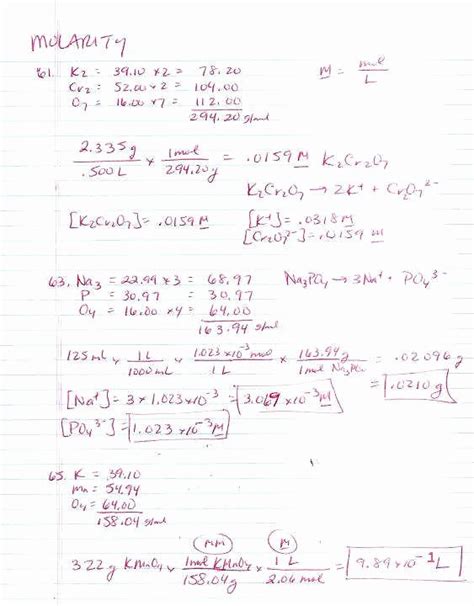 MOLARITY
61. K₂ = 39.10 × 2 = 78.20 M = mol/L
Cr₂ = 52.00 × 2 = 104.00
O₇ = 16.00 × 7 = 112.00
294.20 g/mol
2.335g/.500L × 1mol/294.20g = .0159 M K₂Cr₂O₇
K₂Cr₂O₇ → 2K⁺ + Cr₂O₇²⁻
[K₂Cr₂O₇] = .0159 M [K⁺] = .0318 M
[Cr₂O₇²⁻] = .0159 M
63. Na₃ = 22.99 × 3 = 68.97 Na₃PO₄ → 3Na⁺ + PO₄³⁻
P = 30.97 = 30.97
O₄ = 16.00 × 4 = 64.00
163.94 g/mol
125 mL × 1L/1000mL × 1.023×10⁻³ mol/1L × 163.94g/1mol Na₃PO₄ = .02096g
= 1.0210g
[Na⁺] = 3 × 1.023×10⁻³ = 3.069×10⁻³ M
[PO₄³⁻] = 1.023×10⁻³ M
65. K = 39.10
Mn = 54.94
O₄ = 64.00
158.04 g/mol
MM M
322 g KMnO₄ × 1mol KMnO₄/158.04g × 1L/2.06mol = 9.89×10⁻¹ L